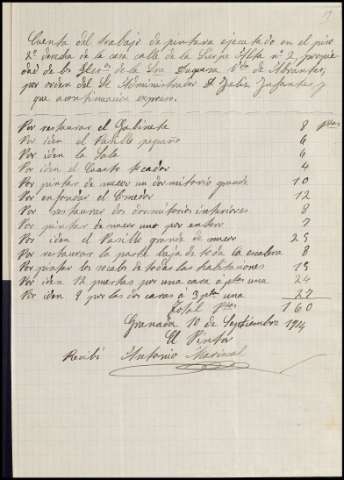 Cuenta del trabajo de pintura ejecutado en el piso
2º de la casa calle de la Sierpe Alta nº 2, propie
dad de los de la Sra Duquesa de Abrantes,
por orden del Sr Administrador D
que a continuacion expreso.
Por restaurar el Gabinete 8 ptas
Por iden el Pasillo pequeño 6
Por iden la Sala 6
Por iden el Cuarto tocador 4
Por pintar de nuevo un dormitorio grande 10
Por enfondar el Comedor 12
Por restaurar dos dormitorios interiores 8
Por pintar de nuevo uno por entero 7
Por iden el Pasillo grande de nuevo 25
Por restaurar la parte baja de toda la escalera 8
Por pintar los socalos de todas las habitasiones 15
Por iden 12 puertas por una cara á ptas una 24
Por iden 9 por las dos caras á 3 ptas una 27
Total Ptas 160
Granada 10 de Septiembre 1914
El Pintor
Recibi Antonio Mariscal